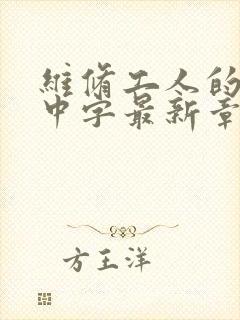 維脩工人的
中字最新章
方王洋